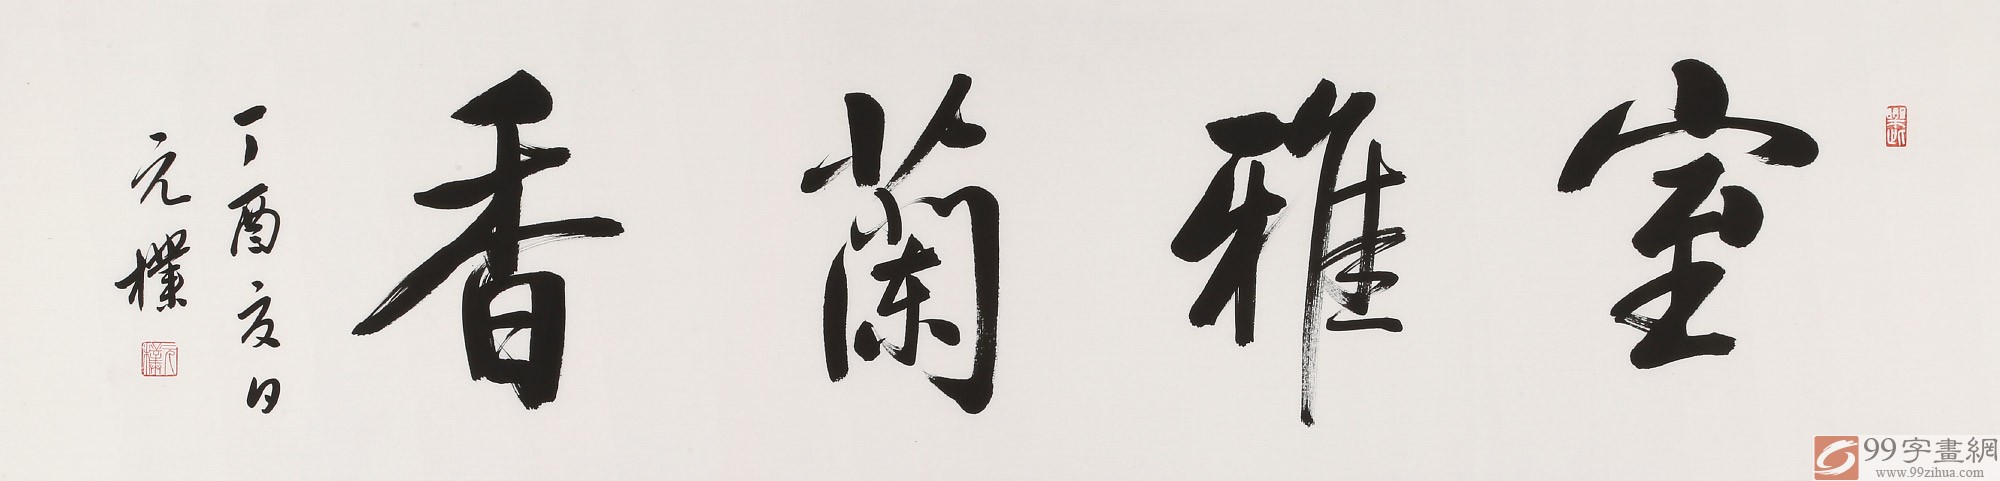 室雅蘭香
丁酉夏日
元樸
元樸
99字畫網
www.99zihua.com